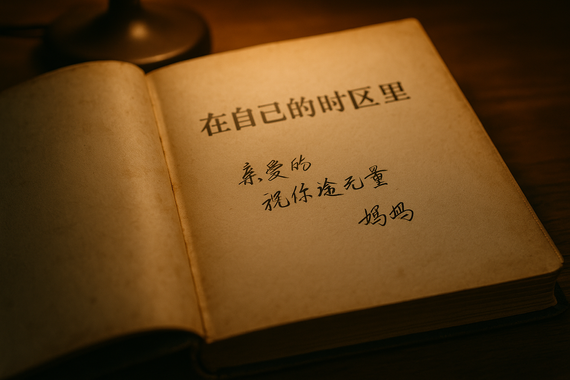 在自己的时区里
亲爱的
祝你途无量
妈妈